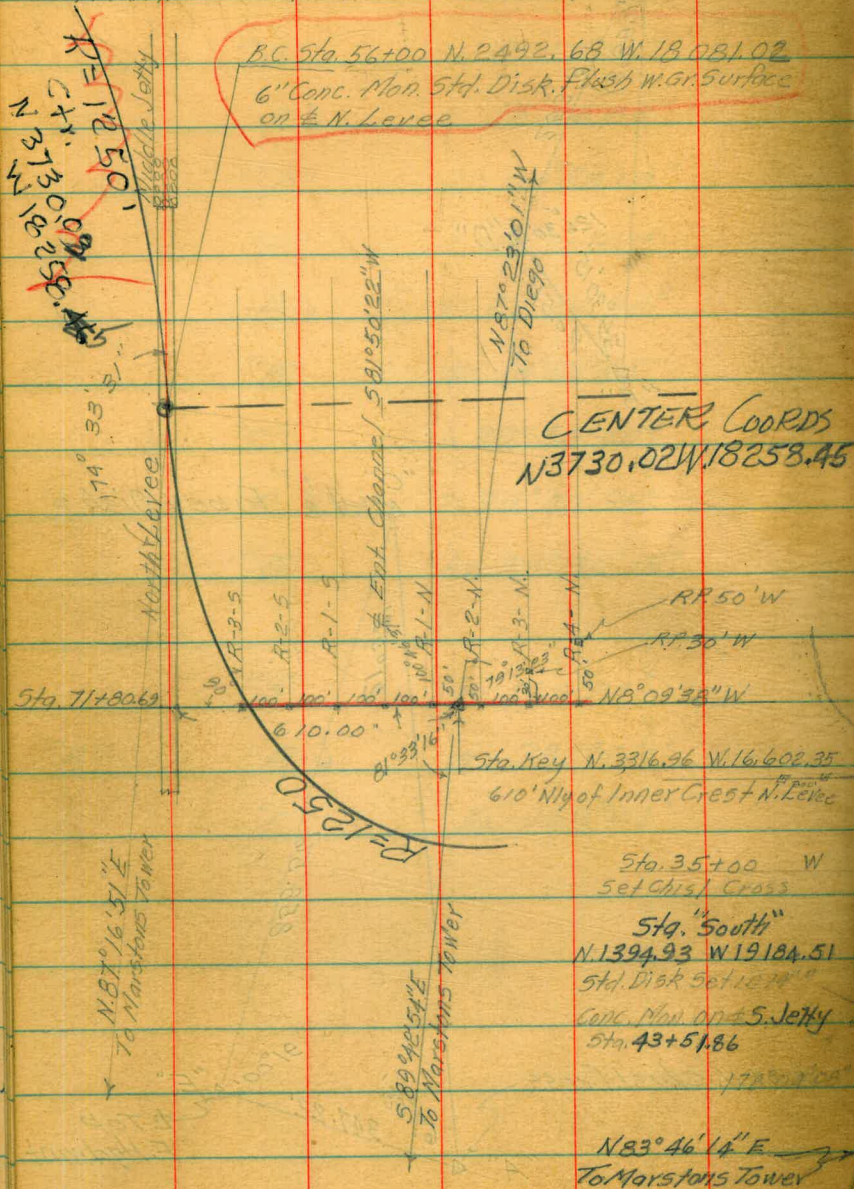 B.C. Sta. 56+00 N. 2492.68 W. 18081.02
6" Conc. Mon. Std. Disk. Flush w. Gr. Surface
on ℄ N. Levee
R = 1250'
Ctr.
N 3730.02
W 18258.45
Middle Jetty
174° 33' 31"
North Levee
℄ Ent. Channel S 81° 50' 22" W
N 87° 23' 01" W
To Diego
CENTER COORDS
N3730.02 W.18258.45
R-3-S
R-2-S
R-1-S
R-1-N
R-2-N
R-3-N
R-4-N
R.P. 50' W
R.P. 30' W
79° 13' 03"
Sta. 71+80.69
100'
100'
100'
50'
50'
100'
30'
100'
50'
N8° 09' 38" W
610.00
81° 33' 16"
Sta. Key N. 3316.96 W. 16,602.35
610' Nly of Inner Crest N. Levee
R=1250
Sta. 35+00 W
Set Chisl Cross
Sta. "South"
N. 1394.93 W 19184.51
Std. Disk Set in
Conc. Mon. on ℄ S. Jetty
Sta. 43+51.86
N. 87° 16' 51" E
To Marstons Tower
S 89° 42' 54" E
To Marstons Tower
N83° 46' 14" E
To Marstons Tower